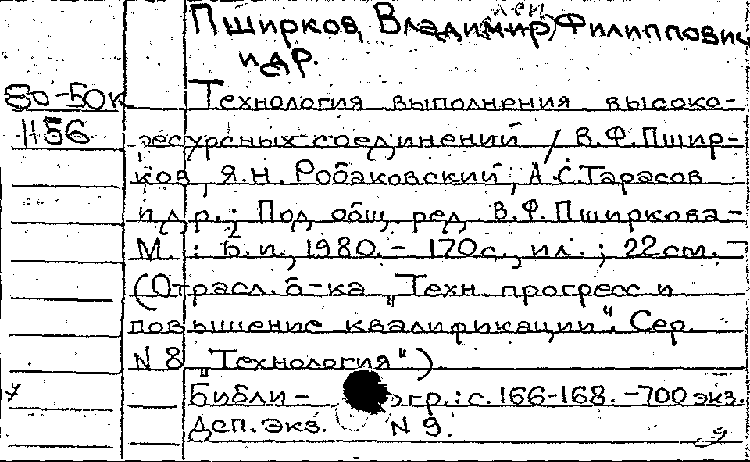 Пширков, Владимир Филиппович
и др.
80-50к
1156
Технология выполнения высоко-
ресурсных соединений / В.Ф.Пшир-
ков, Я.Н. Робаковский, А.С.Тарасов
и др.; Под общ. ред. В.Ф.Пширкова-
М.: Б.и., 1980. - 170с., ил.; 22см. -
(Отрасл. б-ка „Техн. прогресс и
повышение квалификации". Сер.
N 8 „Технология")
Библи- огр.: с. 166-168. -700 экз.
Деп. экз. N 9.